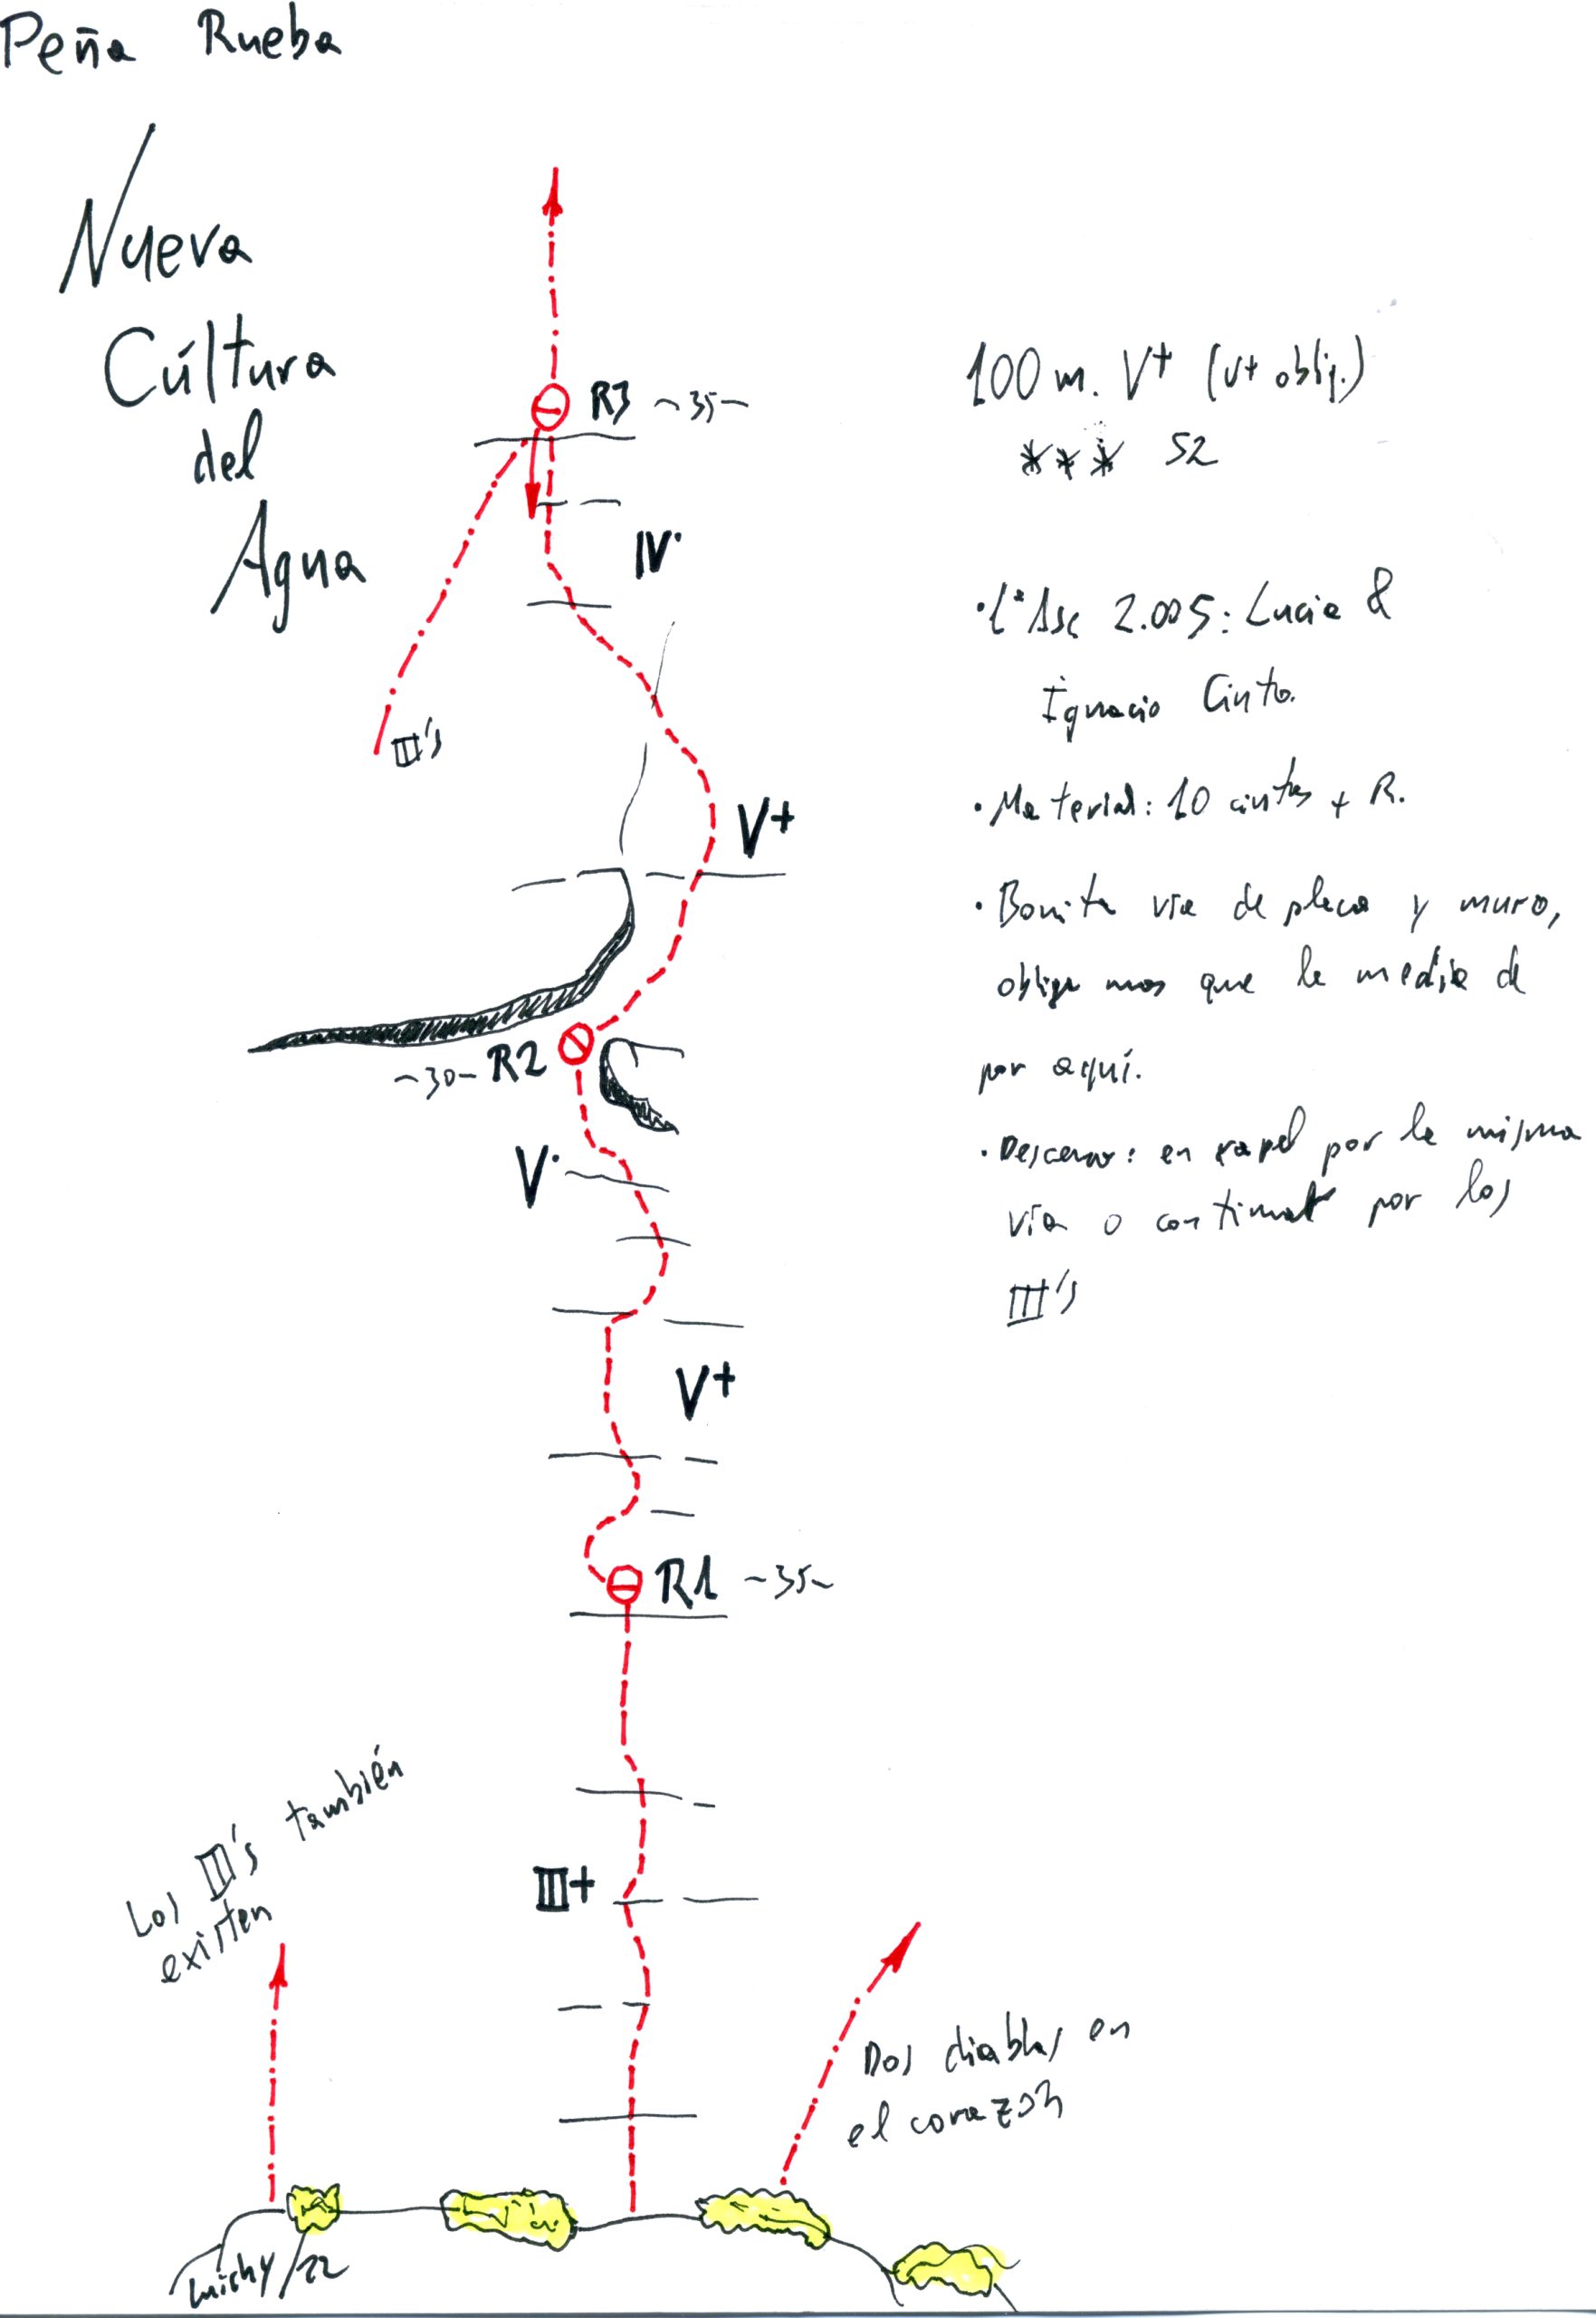 Peña Rueba
Nueva
Cúltura
del
Agua
R3 ~35~
IV·
III's
V+
~30~ R2
V·
V+
R1 ~35~
III+
Los III's también
existen
Dos diablos en
el corazón
michy/22
100 m. V+ (V+ oblig.)
*** S2
·1ª Asc 2.005: Lucia &
Ignacio Cinto.
·Material: 10 cintas + R.
·Bonita vía de placa y muro,
obliga mas que la media de
por aquí.
·Descenso: en rapel por la misma
vía o continuar por los
III's